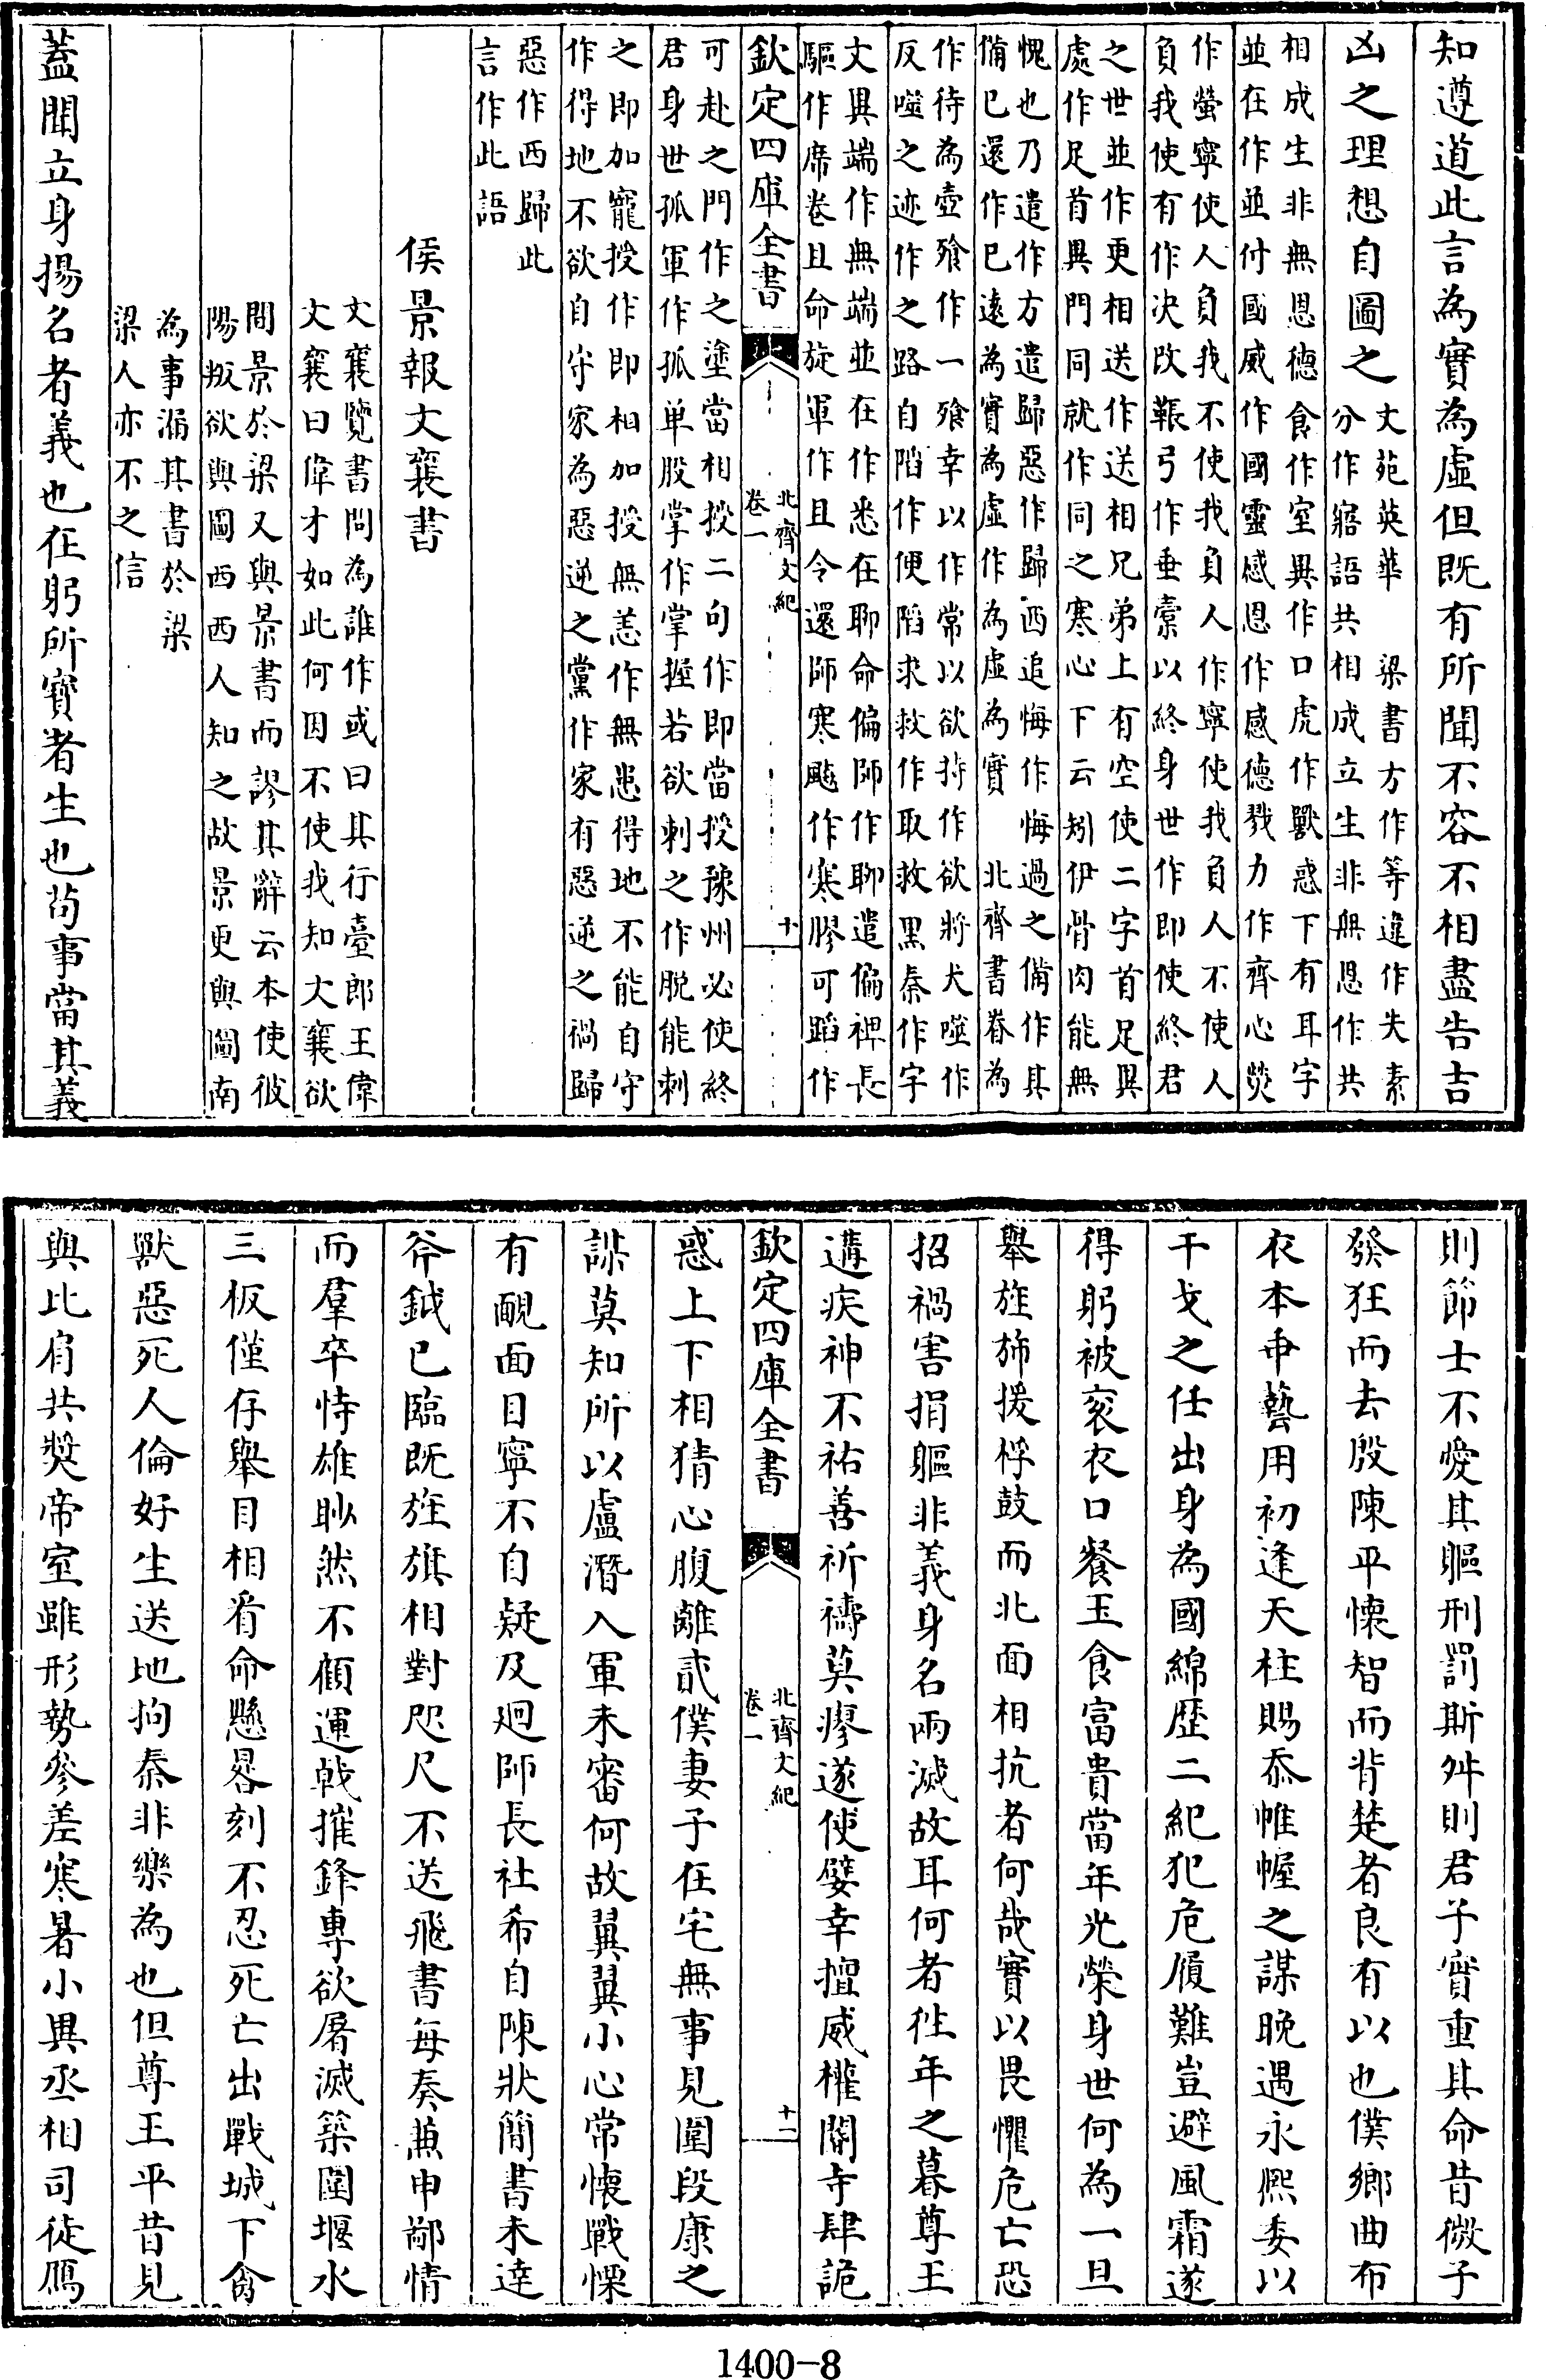 知遵道此言為實為虛但既有所聞不容不相盡告吉
凶之理想自圖之
文苑英華　梁書方作等違作失素
分作寤語共相成立生非無恩作共
相成生非無恩德食作室異作口虎作獸惑下有耳字
並在作並付國威作國靈感恩作感德戮力作齊心熒
作螢寧使人負我不使我負人作寧使我負人不使人
負我使有作決改報弓作垂橐以終身世作即使終君
之世並作更相送作送相兄弟上有空使二字首足異
處作足首異門同就作同之寒心下云矧伊骨肉能無
愧也乃遣作方遣歸惡作歸西追悔作悔過之備作其
備已還作已遠為實為虛作為虛為實　北齊書眷為
作待為壺飱作一飱幸以作常以欲持作欲將犬噬作
反噬之迹作之路自陷作便陷求救作取救黑秦作宇
文異端作無端並在作悉在聊命偏師作聊遣偏裨長
驅作席卷且命旋軍作且令還師寒颸作寒膠可蹈作
欽定四庫全書
北齊文紀
卷一
十
可赴之門作之塗當相授二句作即當授豫州必使終
君身世孤軍作孤單股掌作掌握若欲刺之作脫能刺
之即加寵授作即相加授無恙作無患得地不能自守
作得地不欲自守家為惡逆之黨作家有惡逆之禍歸
惡作西歸此
言作此語
侯景報文襄書
文襄覽書問為誰作或曰其行臺郎王偉
文襄曰偉才如此何因不使我知文襄欲
間景於梁又與景書而謬其辭云本使彼
陽叛欲與圖西西人知之故景更與圖南
為事漏其書於梁
梁人亦不之信
蓋聞立身揚名者義也在躬所寶者生也苟事當其義
則節士不愛其軀刑罰斯舛則君子實重其命昔微子
發狂而去殷陳平懷智而背楚者良有以也僕鄉曲布
衣本乖藝用初逢天柱賜忝帷幄之謀晚遇永熙委以
干戈之任出身為國綿歷二紀犯危履難豈避風霜遂
得躬被袞衣口餐玉食富貴當年光榮身世何為一旦
舉旌旆援桴鼓而北面相抗者何哉實以畏懼危亡恐
招禍害捐軀非義身名兩滅故耳何者往年之暮尊王
遘疾神不祐善祈禱莫瘳遂使嬖幸擅威權閽寺肆詭
欽定四庫全書
北齊文紀
卷一
十一
惑上下相猜心腹離貳僕妻子在宅無事見圍段康之
謀莫知所以盧潛入軍未審何故翼翼小心常懷戰慄
有靦面目寧不自疑及廻師長社希自陳狀簡書未達
斧鉞已臨既旌旗相對咫尺不送飛書每奏兼申鄙情
而羣卒恃雄眇然不顧運戟摧鋒專欲屠滅築圍堰水
三板僅存舉目相看命懸晷刻不忍死亡出戰城下禽
獸惡死人倫好生送地拘秦非樂為也但尊王平昔見
與比肩共奬帝室雖形勢參差寒暑小異丞相司徒鴈
1400-8